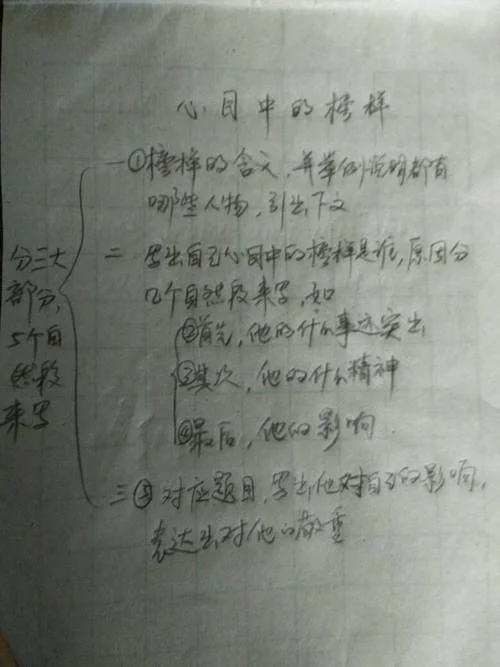 心目中的榜样
一①榜样的含义,并举例说明都有
哪些人物,引出下文
分三大
部分,
5个自
然段
来写
二 写出自己心目中的榜样是谁,原因分
几个自然段来写,如
②首先,他的什么事迹突出
③其次,他的什么精神
④最后,他的影响.
三⑤对应题目,写出他对自己的影响,
表达出对他的敬重